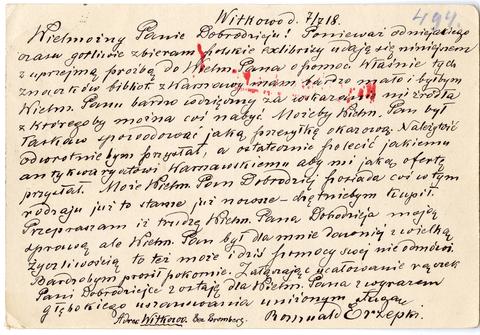 Witkowo d. 7/7 18.
494
Wielmożny Panie Dobrodzieju! Ponieważ od niejakiego
czasu gorliwie zbieram polskie exlibrisy udaję się niniejszem
z uprzejmą prośbą do Wielm. Pana o pomoc właśnie tych
znaczków bibliot. z Warszawy mam bardzo mało i byłbym
Wielm. Panu bardzo wdzięczny za wskazanie mi źródła
z któregoby można coś nabyć. Możeby Wielm. Pan był
łaskaw spowodować jaką przesyłkę okazową. Należytość
odwrotnie bym przysłał, a ostatecznie polecić jakiemu
antykwaryatowi Warszawskiemu aby mi jaką ofertę
przysłał. Może Wielm. Pan Dobrodziej posiada coś w tym
rodzaju już to starsze już nowsze - chętniebym kupił.
Przepraszam iż trudzę Wielm. Pana Dobodzieja moją
sprawą ale Wielm. Pan był dla mnie dawniej z wielką
życzliwością to też może i dziś pomocy swej nie odmówi.
Bardzobym prosił pokornie. Załączając ucałowanie rączek
Pani Dobrodziejce zostaję dla Wielm. Pana z wyrazem
głębokiego uszanowania uniżonym sługą
Adres Witkowo. Bez. Bromberg. Romuald Erzepki.